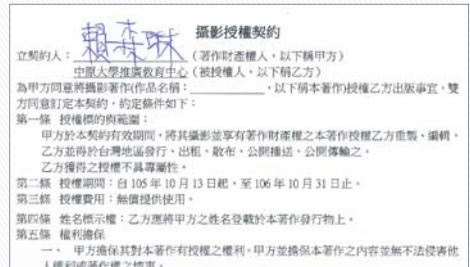 攝影授權契約
立契約人：賴森琳（著作財產權人，以下稱甲方）
中原大學推廣教育中心（被授權人，以下稱乙方）
為甲方同意將攝影著作(作品名稱：＿＿＿＿＿＿，以下稱本著作)授權乙方出版事宜，雙
方同意訂定本契約，約定條件如下：
第一條 授權標的與範圍：
甲方於本契約有效期間，將其攝影並享有著作財產權之本著作授權乙方重製、編輯，
乙方並得於台灣地區發行、出租、散布、公開播送、公開傳輸之。
乙方獲得之授權不具專屬性。
第二條 授權期間：自 105 年 10 月 13 日起，至 106 年 10 月 31 日止。
第三條 授權費用：無償提供使用。
第四條 姓名標示權：乙方應將甲方之姓名登載於本著作發行物上。
第五條 權利擔保
一、 甲方擔保其對本著作有授權之權利，甲方並擔保本著作之內容並無不法侵害他
人權利或著作權之情事。